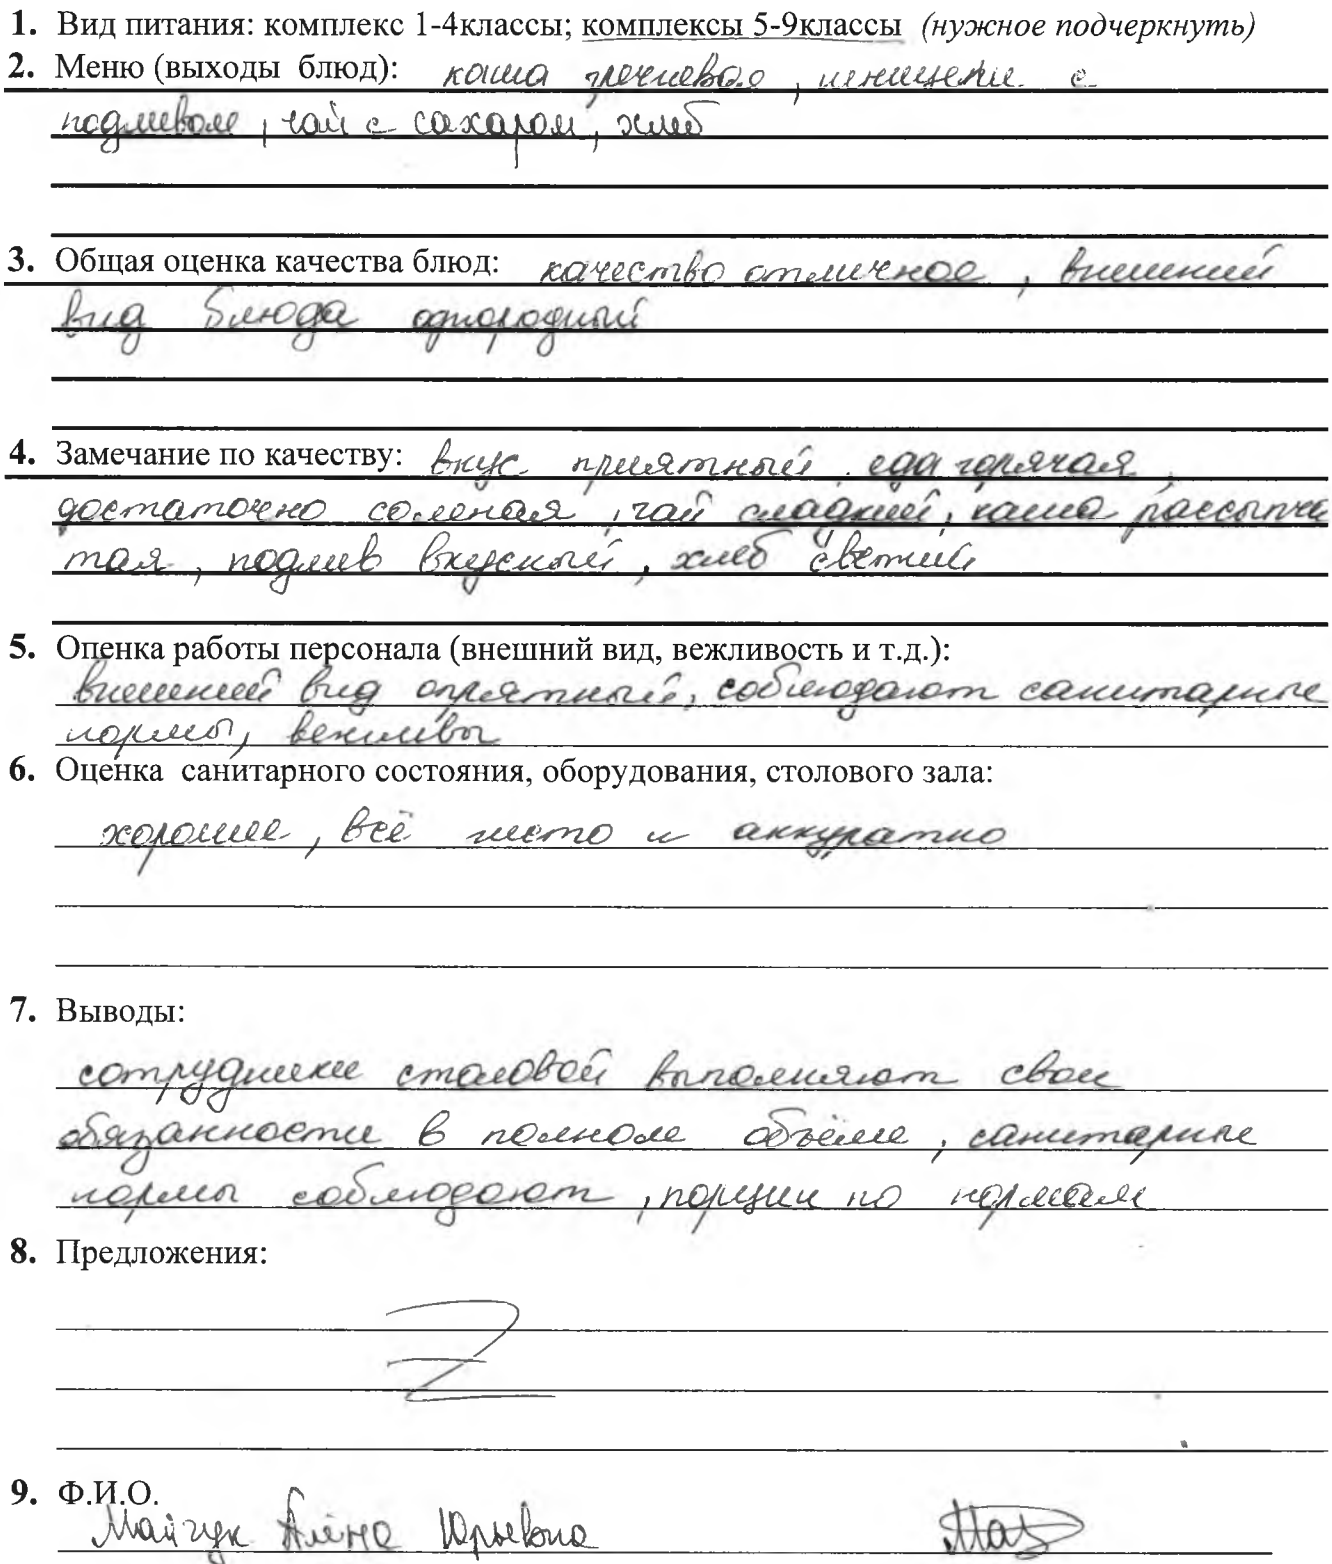 1. Вид питания: комплекс 1-4классы; комплексы 5-9классы (нужное подчеркнуть)
2. Меню (выходы блюд): каша гречневая, шницели с
подливом, чай с сахаром, хлеб
3. Общая оценка качества блюд: качество отличное, внешний
вид блюда однородный
4. Замечание по качеству: вкус приятный, еда горячая,
достаточно соленая, чай сладкий, каша рассыпча
тая, подлив вкусный, хлеб свежий
5. Оценка работы персонала (внешний вид, вежливость и т.д.):
внешний вид опрятный, соблюдают санитарные
нормы, вежливы
6. Оценка санитарного состояния, оборудования, столового зала:
хорошее, всё чисто и аккуратно
7. Выводы:
сотрудники столовой выполняют свои
обязанности в полном объёме, санитарные
нормы соблюдают, порции по нормам
8. Предложения:
9. Ф.И.О.
Майчук Алёна Юрьевна